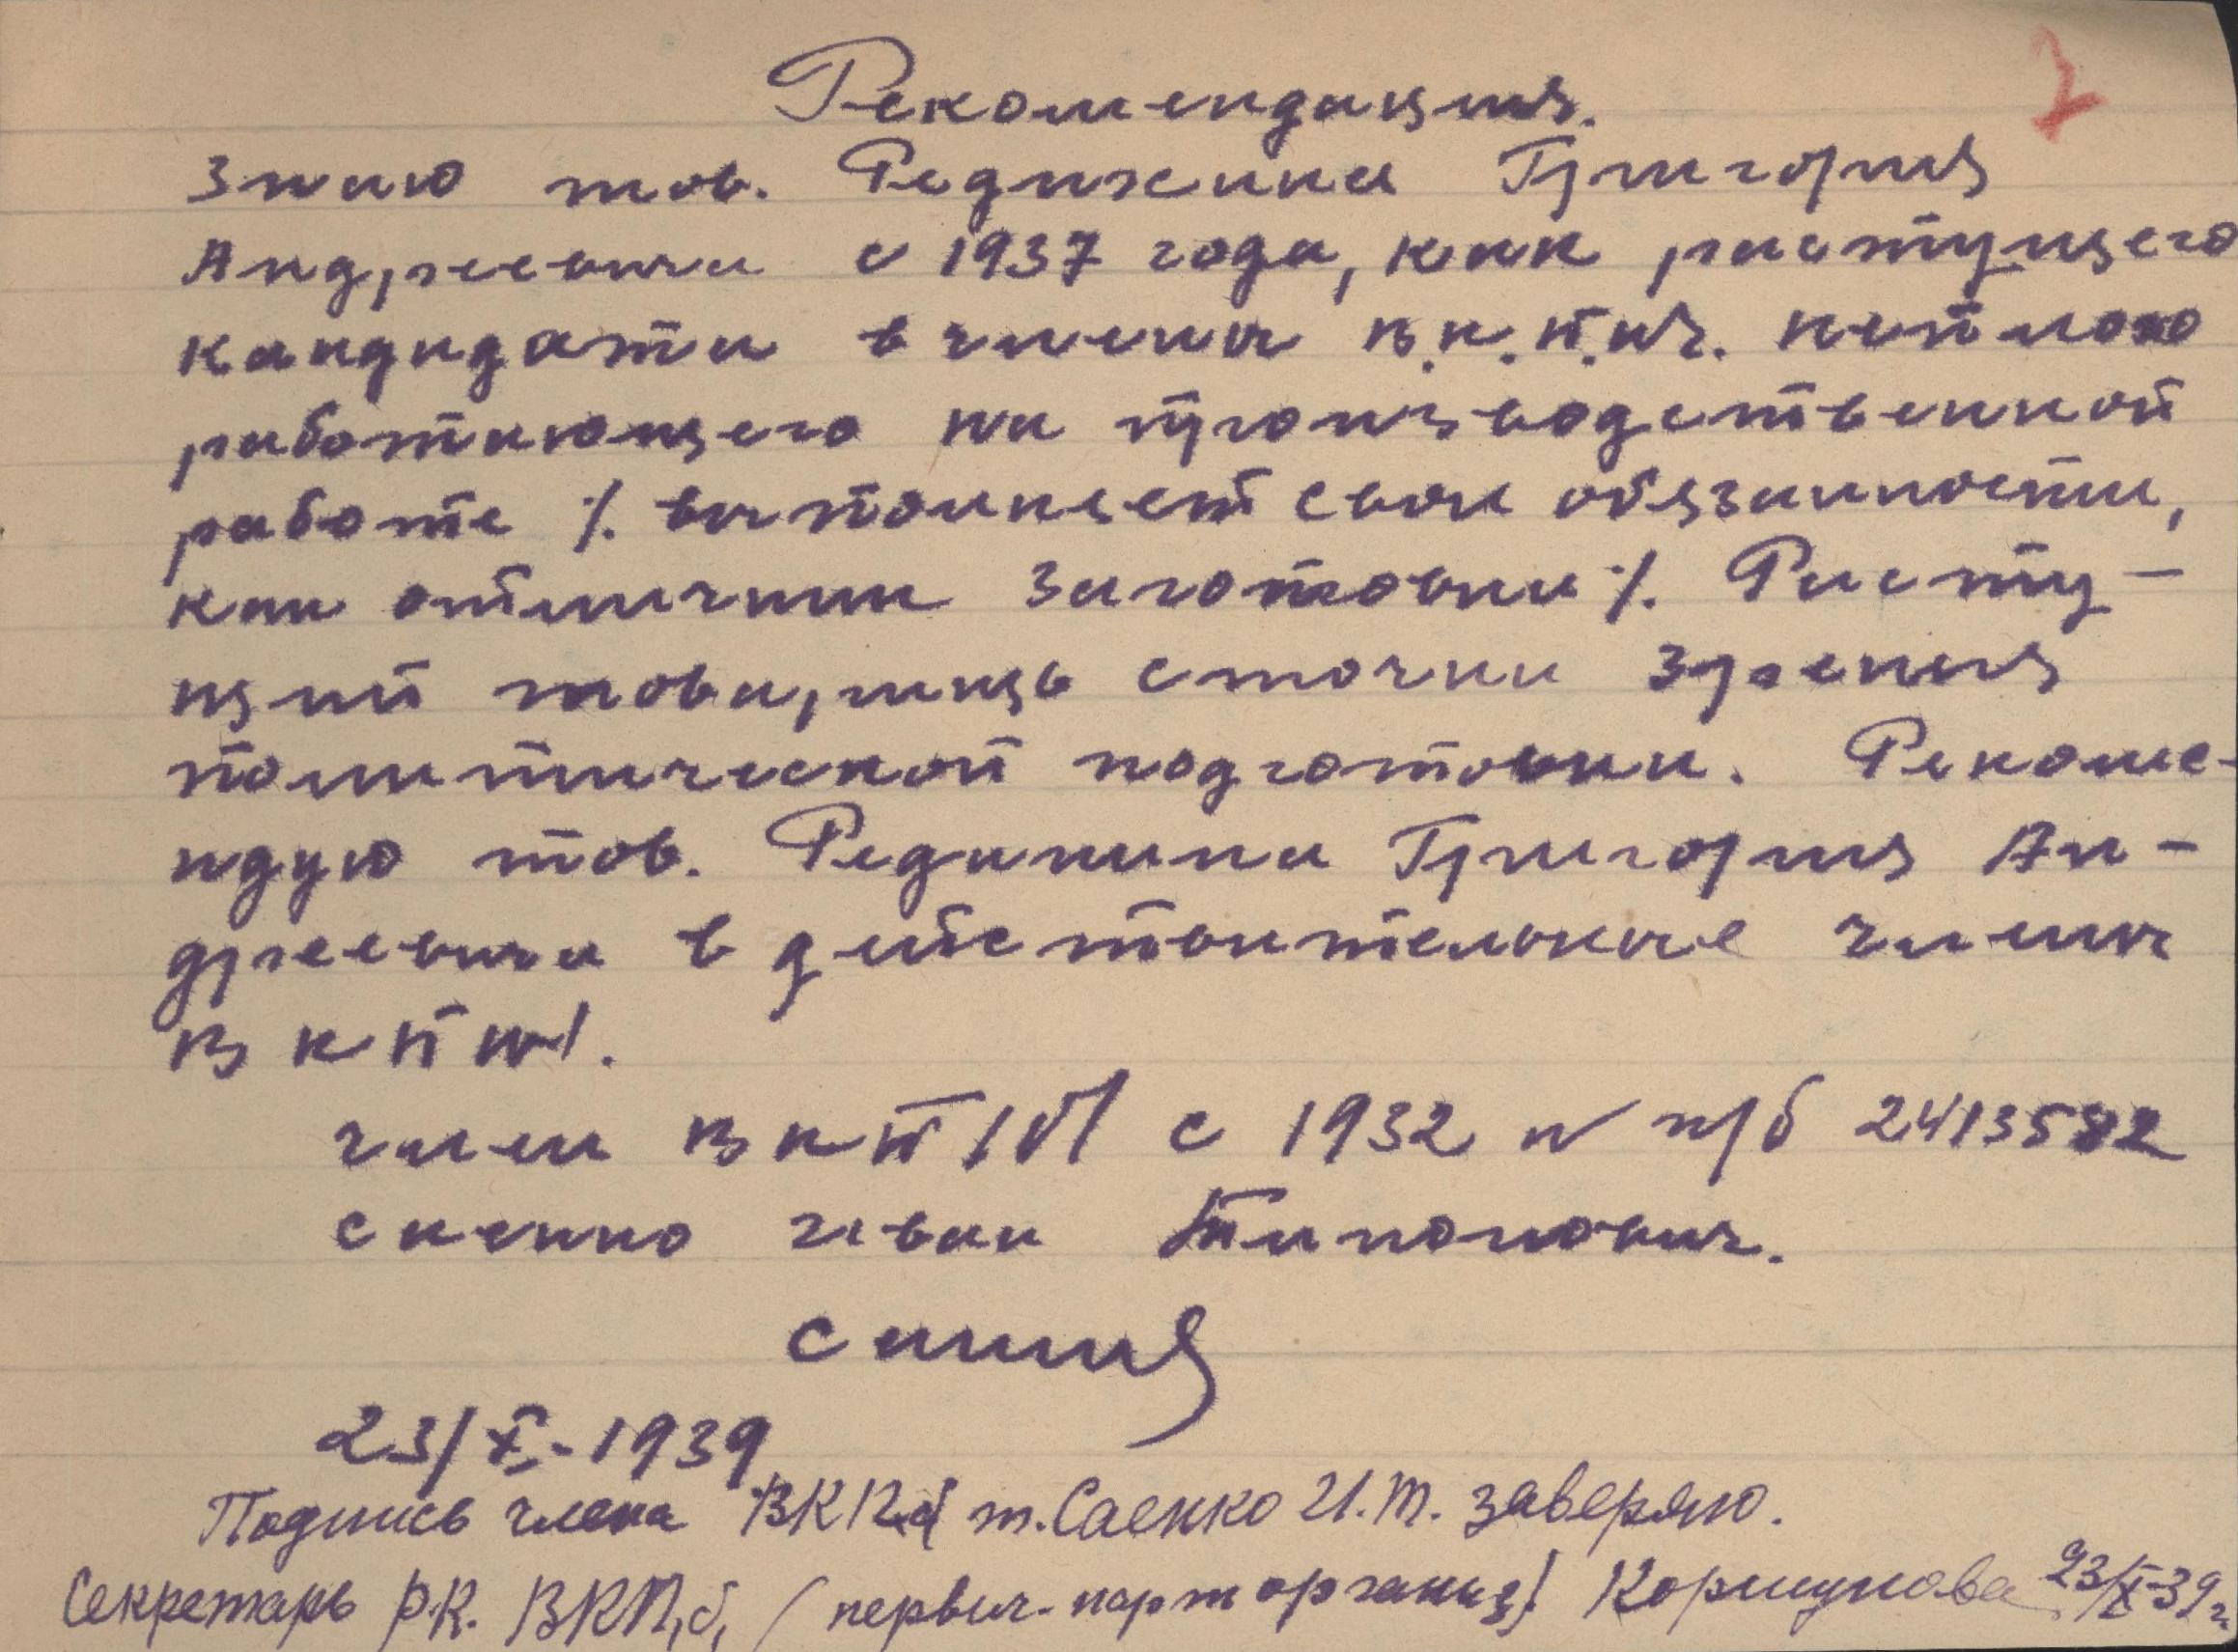 2
Рекомендация.
Знаю тов. Редикина Григория
Андреевича с 1937 года, как растущего
кандидата в члены в.к.п.
работающего на производственной
работе /. выполняет свои обязанности,
как отличник заготовки /. Расту-
щий товарищь с точки зрения
политической подготовки. Рекоме-
ндую тов. Редикина Григория Ан-
дреевича в действительные члены
ВКП
член ВКП/б/ с 1932 № п/б 2413582
Саенко Иван
23/X-1939
Подпись члена ВКПб т. Саенко И.Т. заверяю.
Секретарь РК. ВКП,б, (первич. парторганиз) Коршунова 23/X-39г.